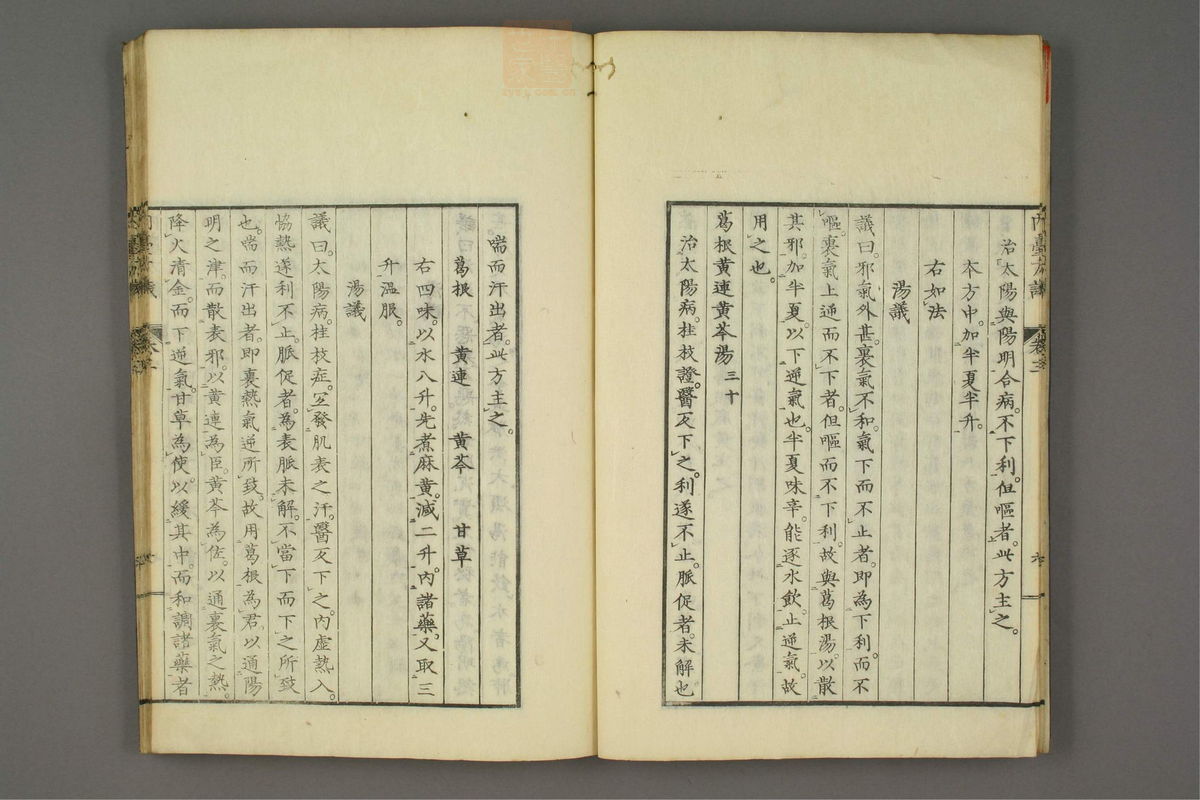 治太陽與陽明合病。不下利。但嘔者。此方主之。
本方中。加半夏半升。
右如法
湯議
議曰。邪氣外甚。裏氣不和。氣下而不止者。即為下利。而不
嘔。裏氣上逆而不下者。但嘔而不下利。故與葛根湯。以散
其邪。加半夏。以下逆氣也。半夏味辛。能逐水飲。止逆氣。故
用之也。
葛根黄連黄芩湯 三十
治太陽病。桂枝證。醫反下之。利遂不止。脈促者。未解也
喘而汗出者。此方主之。
葛根 黄連 黄芩 甘草
右四味。以水八升。先煮麻黄。減二升。內諸藥。又取三
升溫服。
湯議
議曰。太陽病。桂枝症。宜發肌表之汗。醫反下之。內虛熱入。
協熱遂利不止。脈促者。為表脈未解。不當下而下之所致
也。喘而汗出者。即裏熱氣逆所致。故用葛根為君。以通陽
明之津。而散表邪。以黄連為臣。黄芩為佐。以通裏氣之熱。
降火清金。而下逆氣。甘草為使。以緩其中。而和調諸藥者